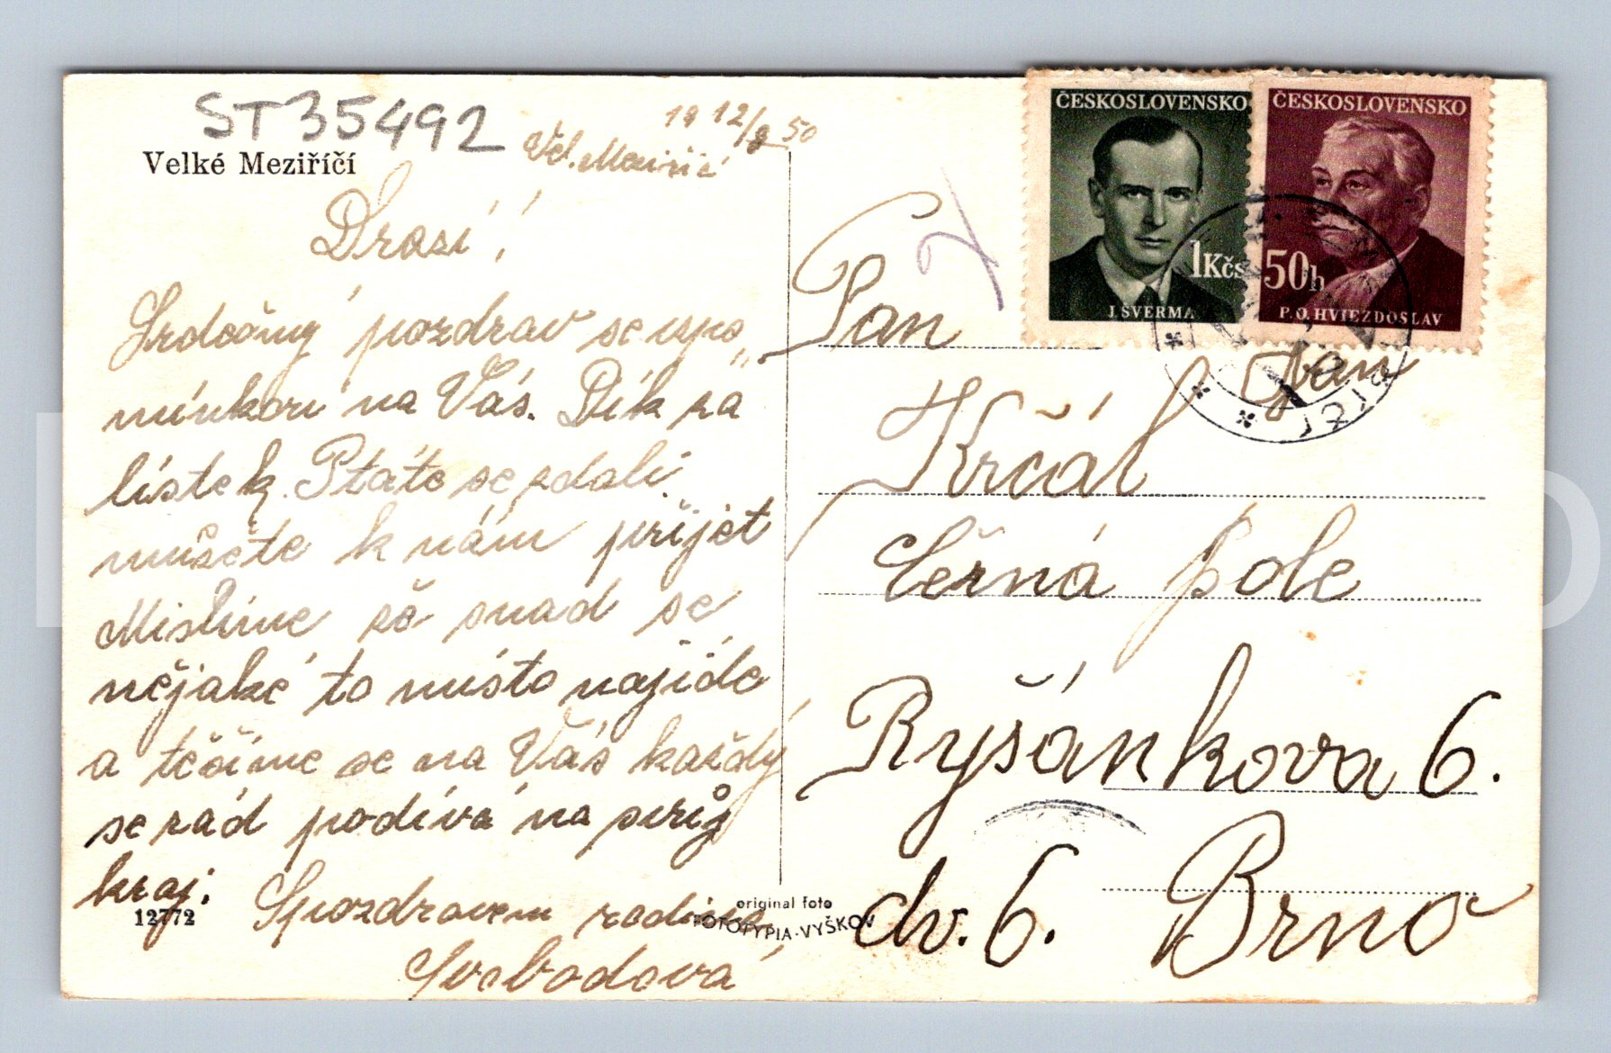 ST35492
Velké Meziříčí
Vel. Meziříčí
19 12/8 50
Drazí!
Srdečný pozdrav se vspo„
mínkou na Vás. Dík za
lístek. Ptáte se zdali
mušete k nám přijet
Mislíme že snad se
nějaké to místo najíde
a těšíme se na Vás každý
se rád podívá na svůj
kraj.
S pozdravem rodina
Svobodová
12772
original foto
FOTOTYPIA-VYŠKOV
ČESKOSLOVENSKO
1Kčs
J. ŠVERMA
ČESKOSLOVENSKO
50h
P.O. HVIEZDOSLAV
Pan
Jan
Krčál
Černá pole
Ryšánkova 6.
dv. 6. Brno